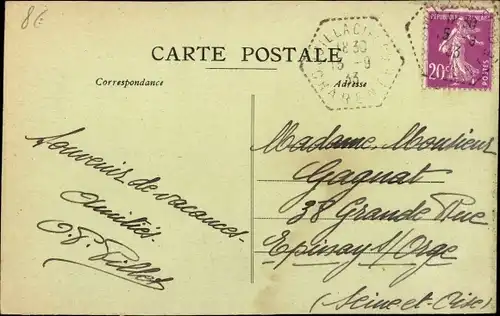 8€
CARTE POSTALE
Correspondance
Adresse
18 30
15 - 9
33
CHARENTE
REPUBLIQUE FRANÇAISE
20c
POSTES
Souvenirs de vacances.
Amitiés.
Madame, Monsieur
Gagnat
38 Grande Rue
Epinay s/ Orge
(Seine-et-Oise)